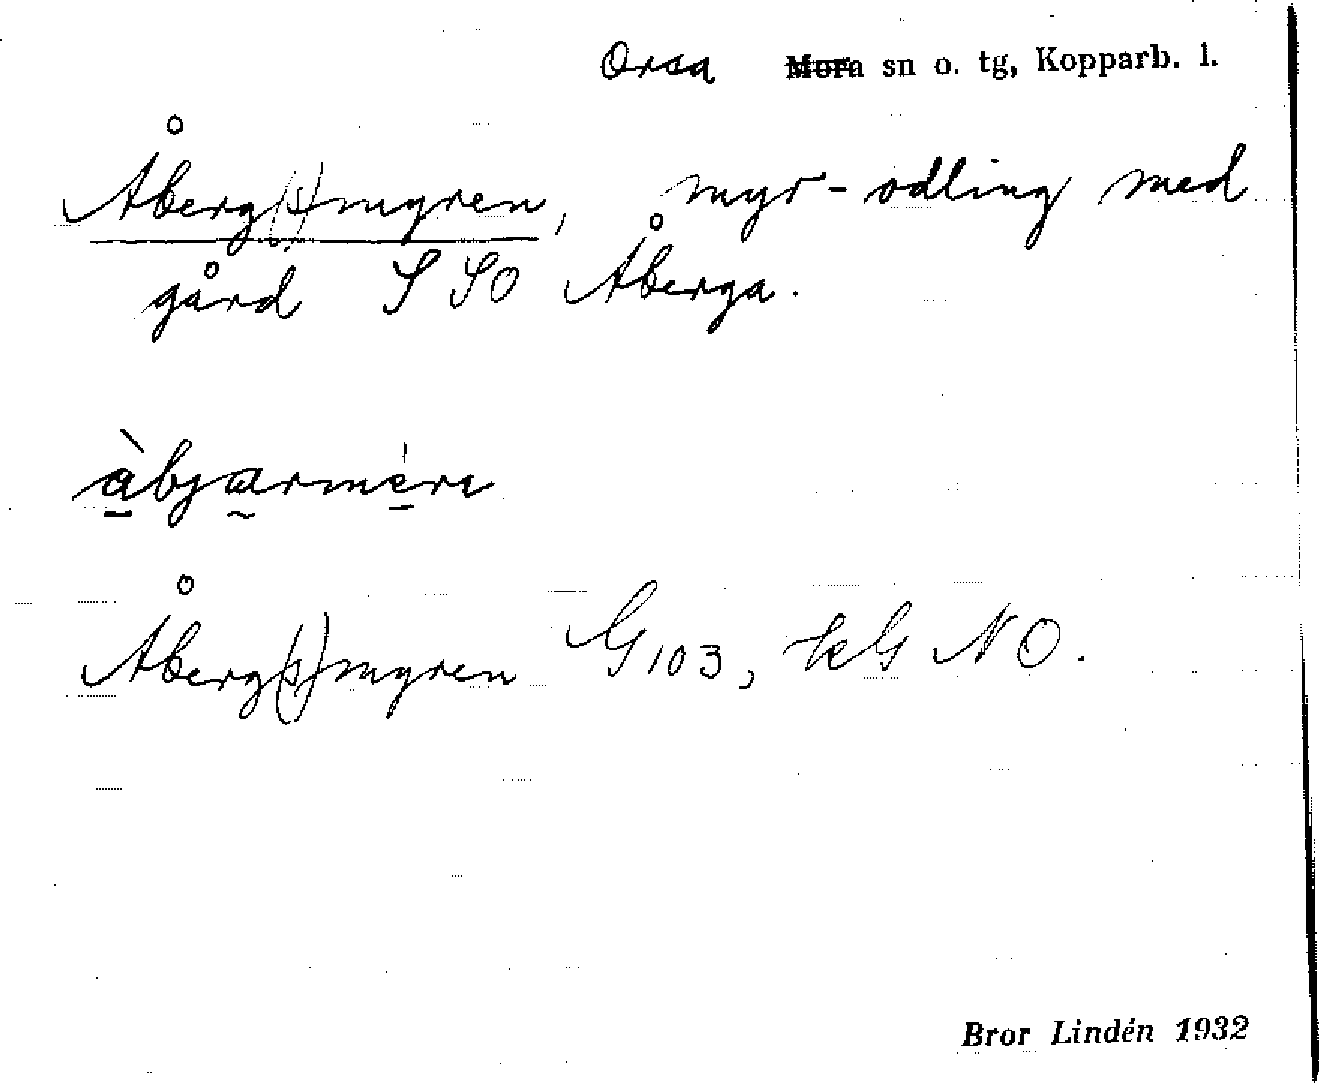 Orsa Mora sn o. tg, Kopparb. l.
Åberg(s)myren, myr-odling med
gård SSO Åberga.
àbjarmèrı
Åberg(s)myren G103, kG NO.
Bror Lindén 1932